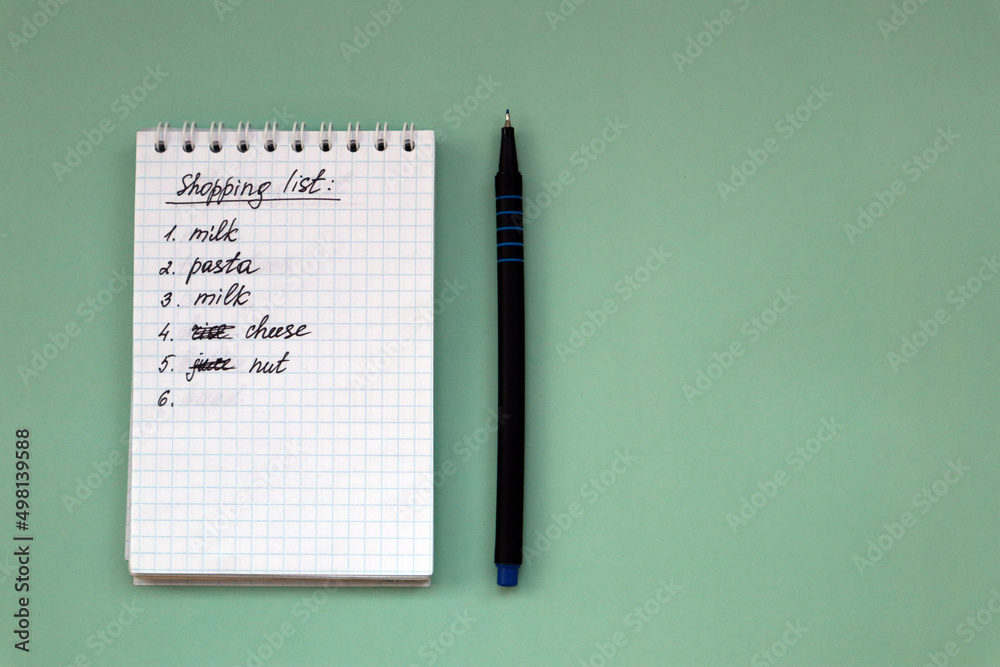 Shopping list:
1. milk
2. pasta
3. milk
4. rice cheese
5. juice nut
6.
Adobe Stock | #498139588